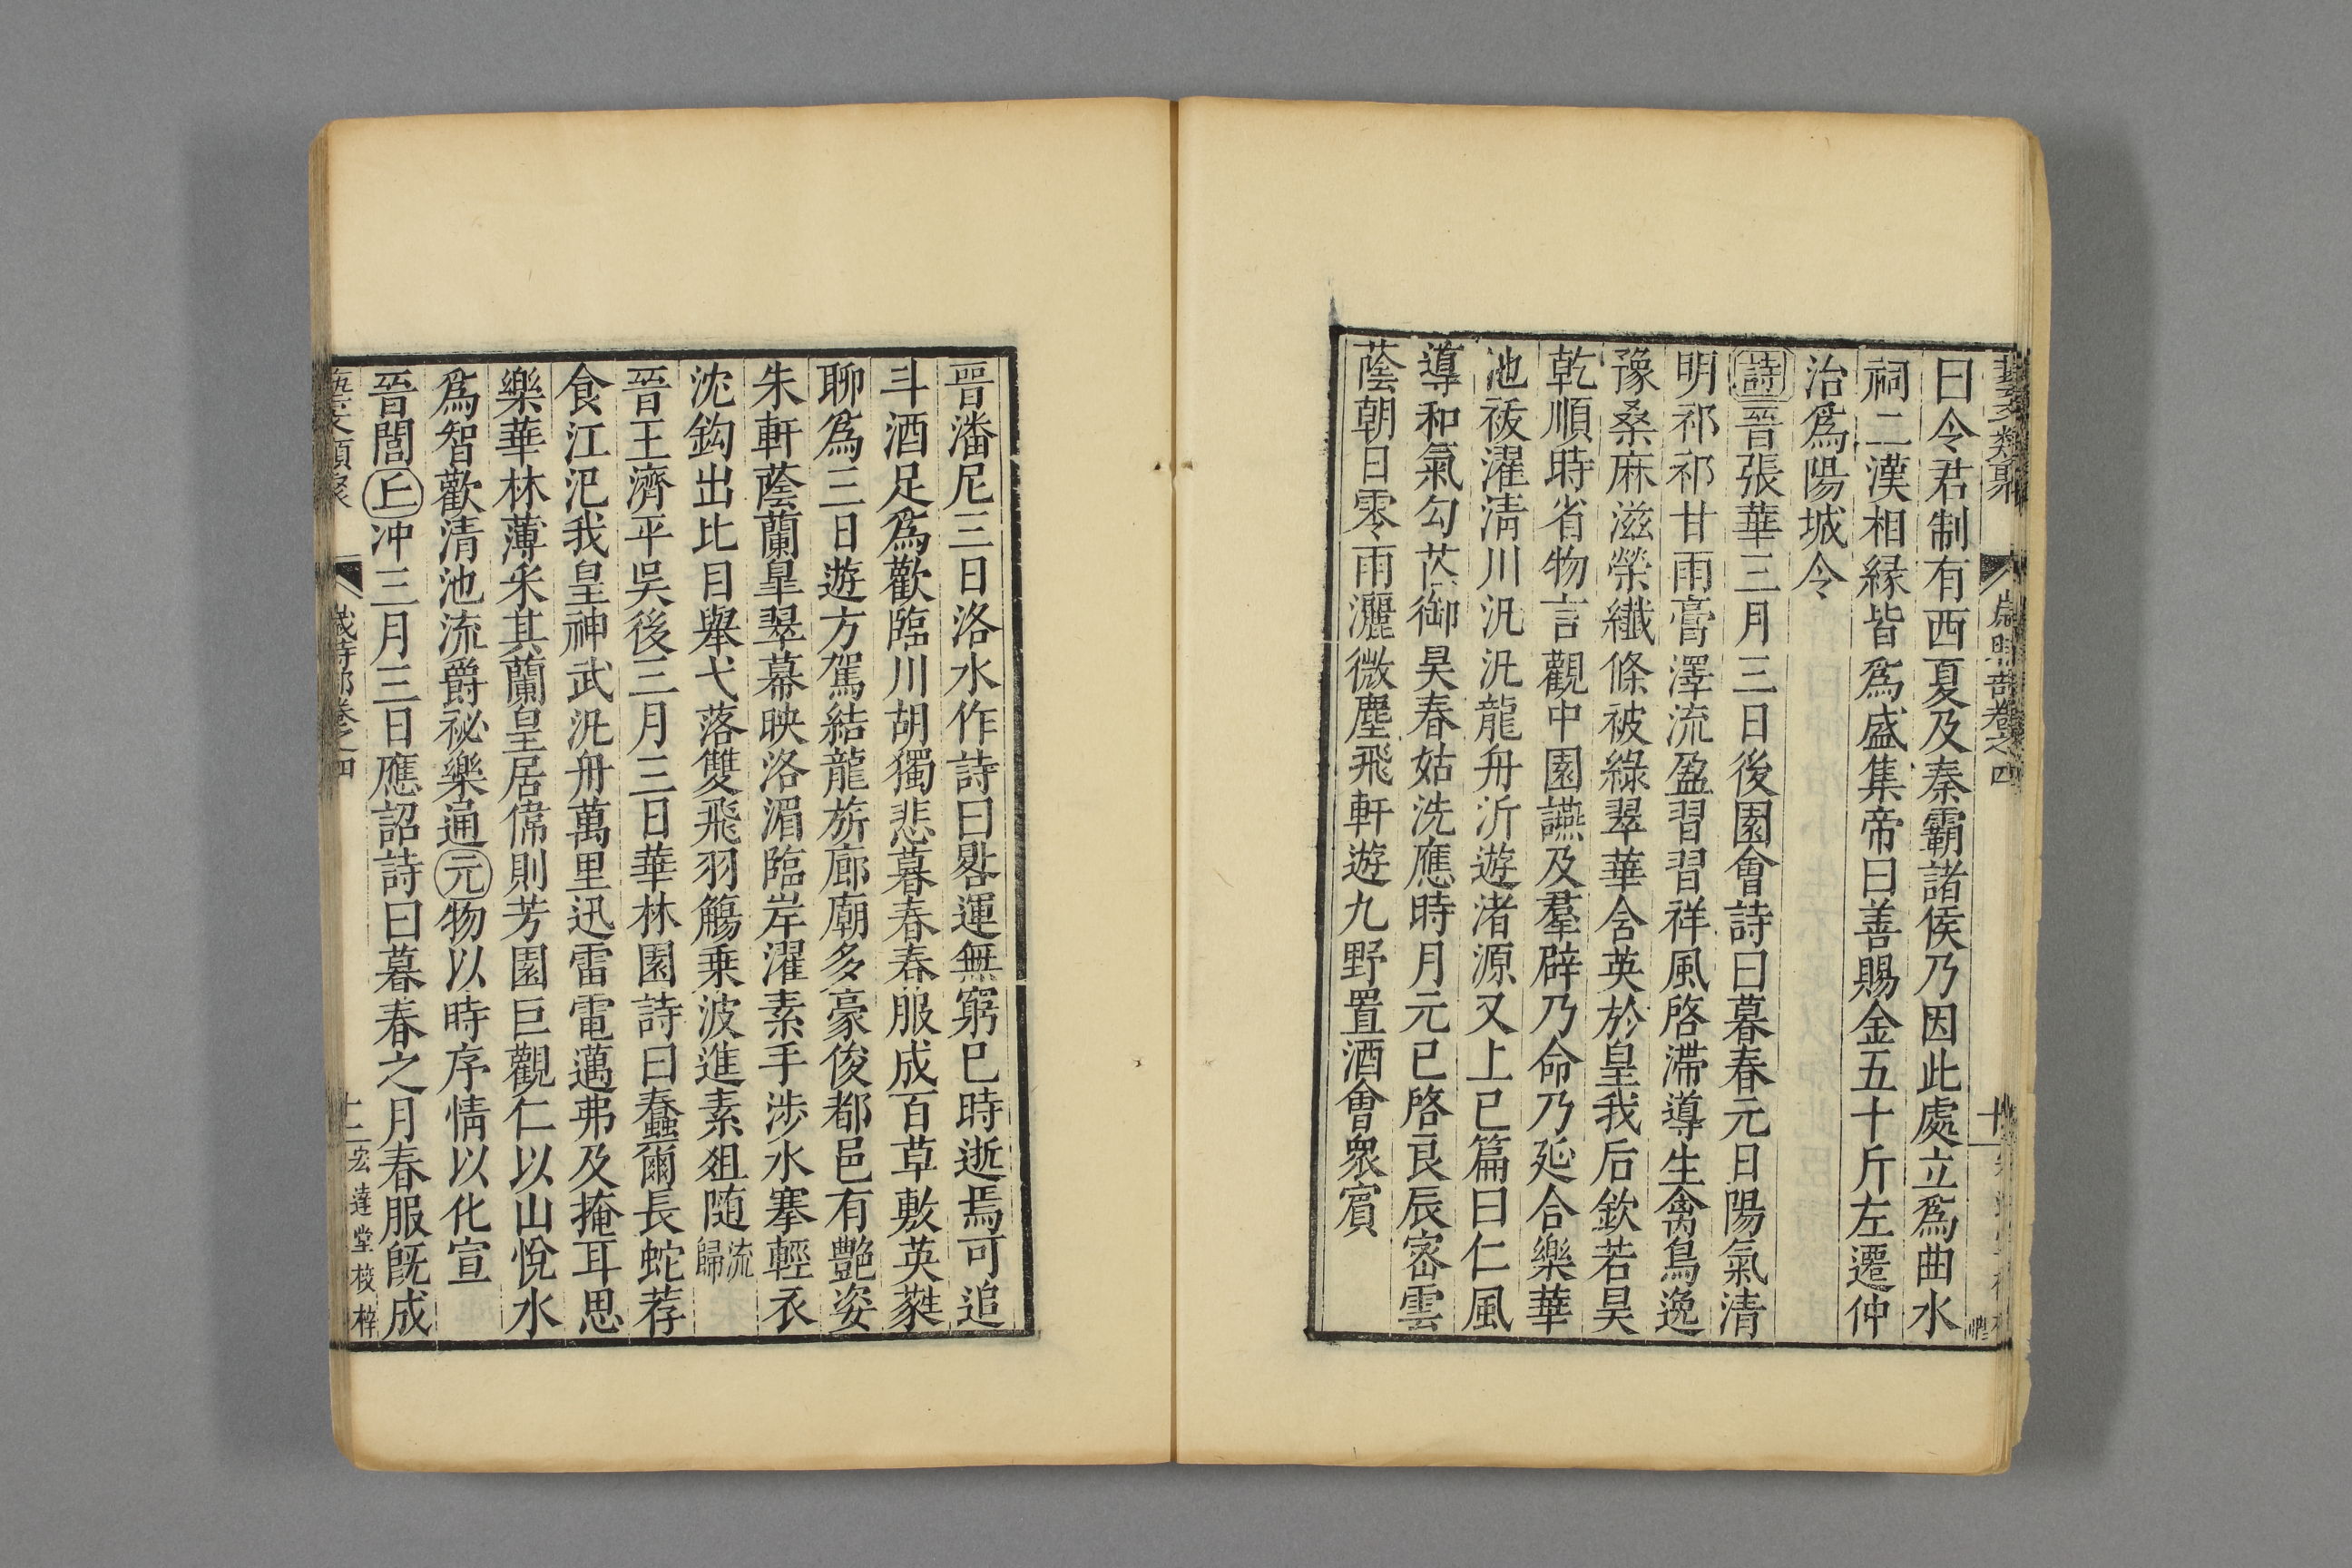 藝文類聚 歲時部卷之四
曰令君制有西夏及秦霸諸侯乃因此處立爲曲水
祠二漢相緣皆爲盛集帝曰善賜金五十斤左遷仲
治爲陽城令
詩晉張華三月三日後園會詩曰暮春元日陽氣清
明祁祁甘雨膏澤流盈習習祥風啓滯導生禽鳥逸
豫桑麻滋榮纖條被綠翠華含英於皇我后欽若昊
乾順時省物言觀中園讌及羣辟乃命乃延合樂華
池祓濯清川汎汎龍舟沂遊渚源又上巳篇曰仁風
導和氣勾芒御昊春姑洗應時月元巳啓良辰宻雲
蔭朝日零雨灑微塵飛軒遊九野置酒會衆賓
晉潘尼三日洛水作詩曰晷運無窮巳時逝焉可追
斗酒足爲歡臨川胡獨悲暮春春服成百草敷英蕤
聊爲三日遊方駕結龍旂廊廟多豪俊都邑有艷姿
朱軒蔭蘭皐翠幕映洛湄臨岸濯素手涉水搴輕衣
沈鈎出比目舉弋落雙飛羽觴乗波進素爼随流歸
晉王濟平吳後三月三日華林園詩曰蠢爾長蛇荐
食江汜我皇神武汎舟萬里迅雷電邁弗及掩耳思
樂華林薄采其蘭皇居偉則芳園巨觀仁以山悅水
爲智歡清池流爵祕樂通元物以時序情以化宣
晉閭丘冲三月三日應詔詩曰暮春之月春服旣成
藝文類聚 歲時部卷之四 十二 宏達堂校梓